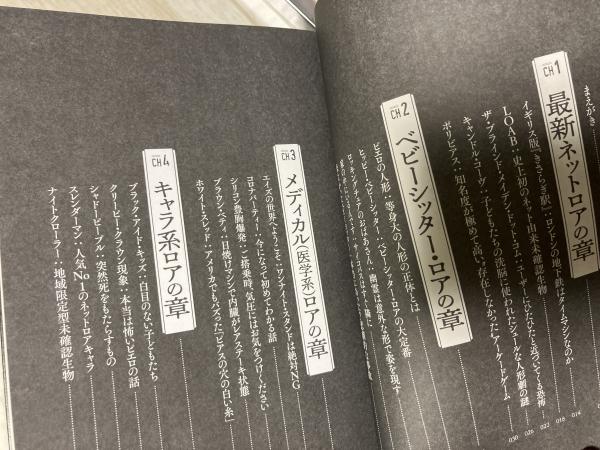 まえがき
CH 1
最新ネットロアの章
イギリス版「きさらぎ駅」：ロンドンの地下鉄はタイムマシンなのか
LOAB：史上初のネット由来未確認生物
ザ・ブラインド・メイデンドットコム：ユーザーにひたひたと近づいてくる恐怖
キャンドル・コーヴ：子どもたちの洗脳に使われたシュールな人形劇の謎
ポリビアス：知名度が極めて高い、存在しなかったアーケードゲーム
014
018
022
026
030
CH 2
ベビーシッター・ロアの章
ピエロの人形：等身大の人形の正体とは
ヒッピー・ベビーシッター：ベビーシッター・ロアの大定番
ロッキングチェアのおばあさん：幽霊は意外な形で姿を現す
CH 3
メディカル（医学系）ロアの章
エイズの世界へようこそ：ワンナイトスタンドは絶対NG
コロナパーティー：今になって初めてわかる話
シリコン豊胸爆発：ご搭乗時、気圧にはお気をつけください
ブラウンベティ：日焼けマシンで内臓がレアステーキ状態
ホワイトスレッド：アメリカでもバズった「ピアスの穴の白い糸」
CH 4
キャラ系ロアの章
ブラック・アイド・キッズ：白目のない子どもたち
クリーピー・クラウン現象：本当は怖いピエロの話
シャドーピープル：突然死をもたらすもの
スレンダーマン：人気No1のネットロアキャラ
ナイトクローラー：地域限定型未確認生物